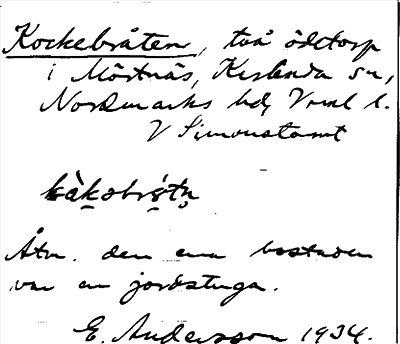 Kockebråten, två ödetorp
i Mörtnäs, Karlanda sn,
Nordmarks hd, Vrml l.
V Simonstomt
kàkobrǻtn
Åtm. den ena bostaden
var en jordstuga.
E. Andersson 1934.